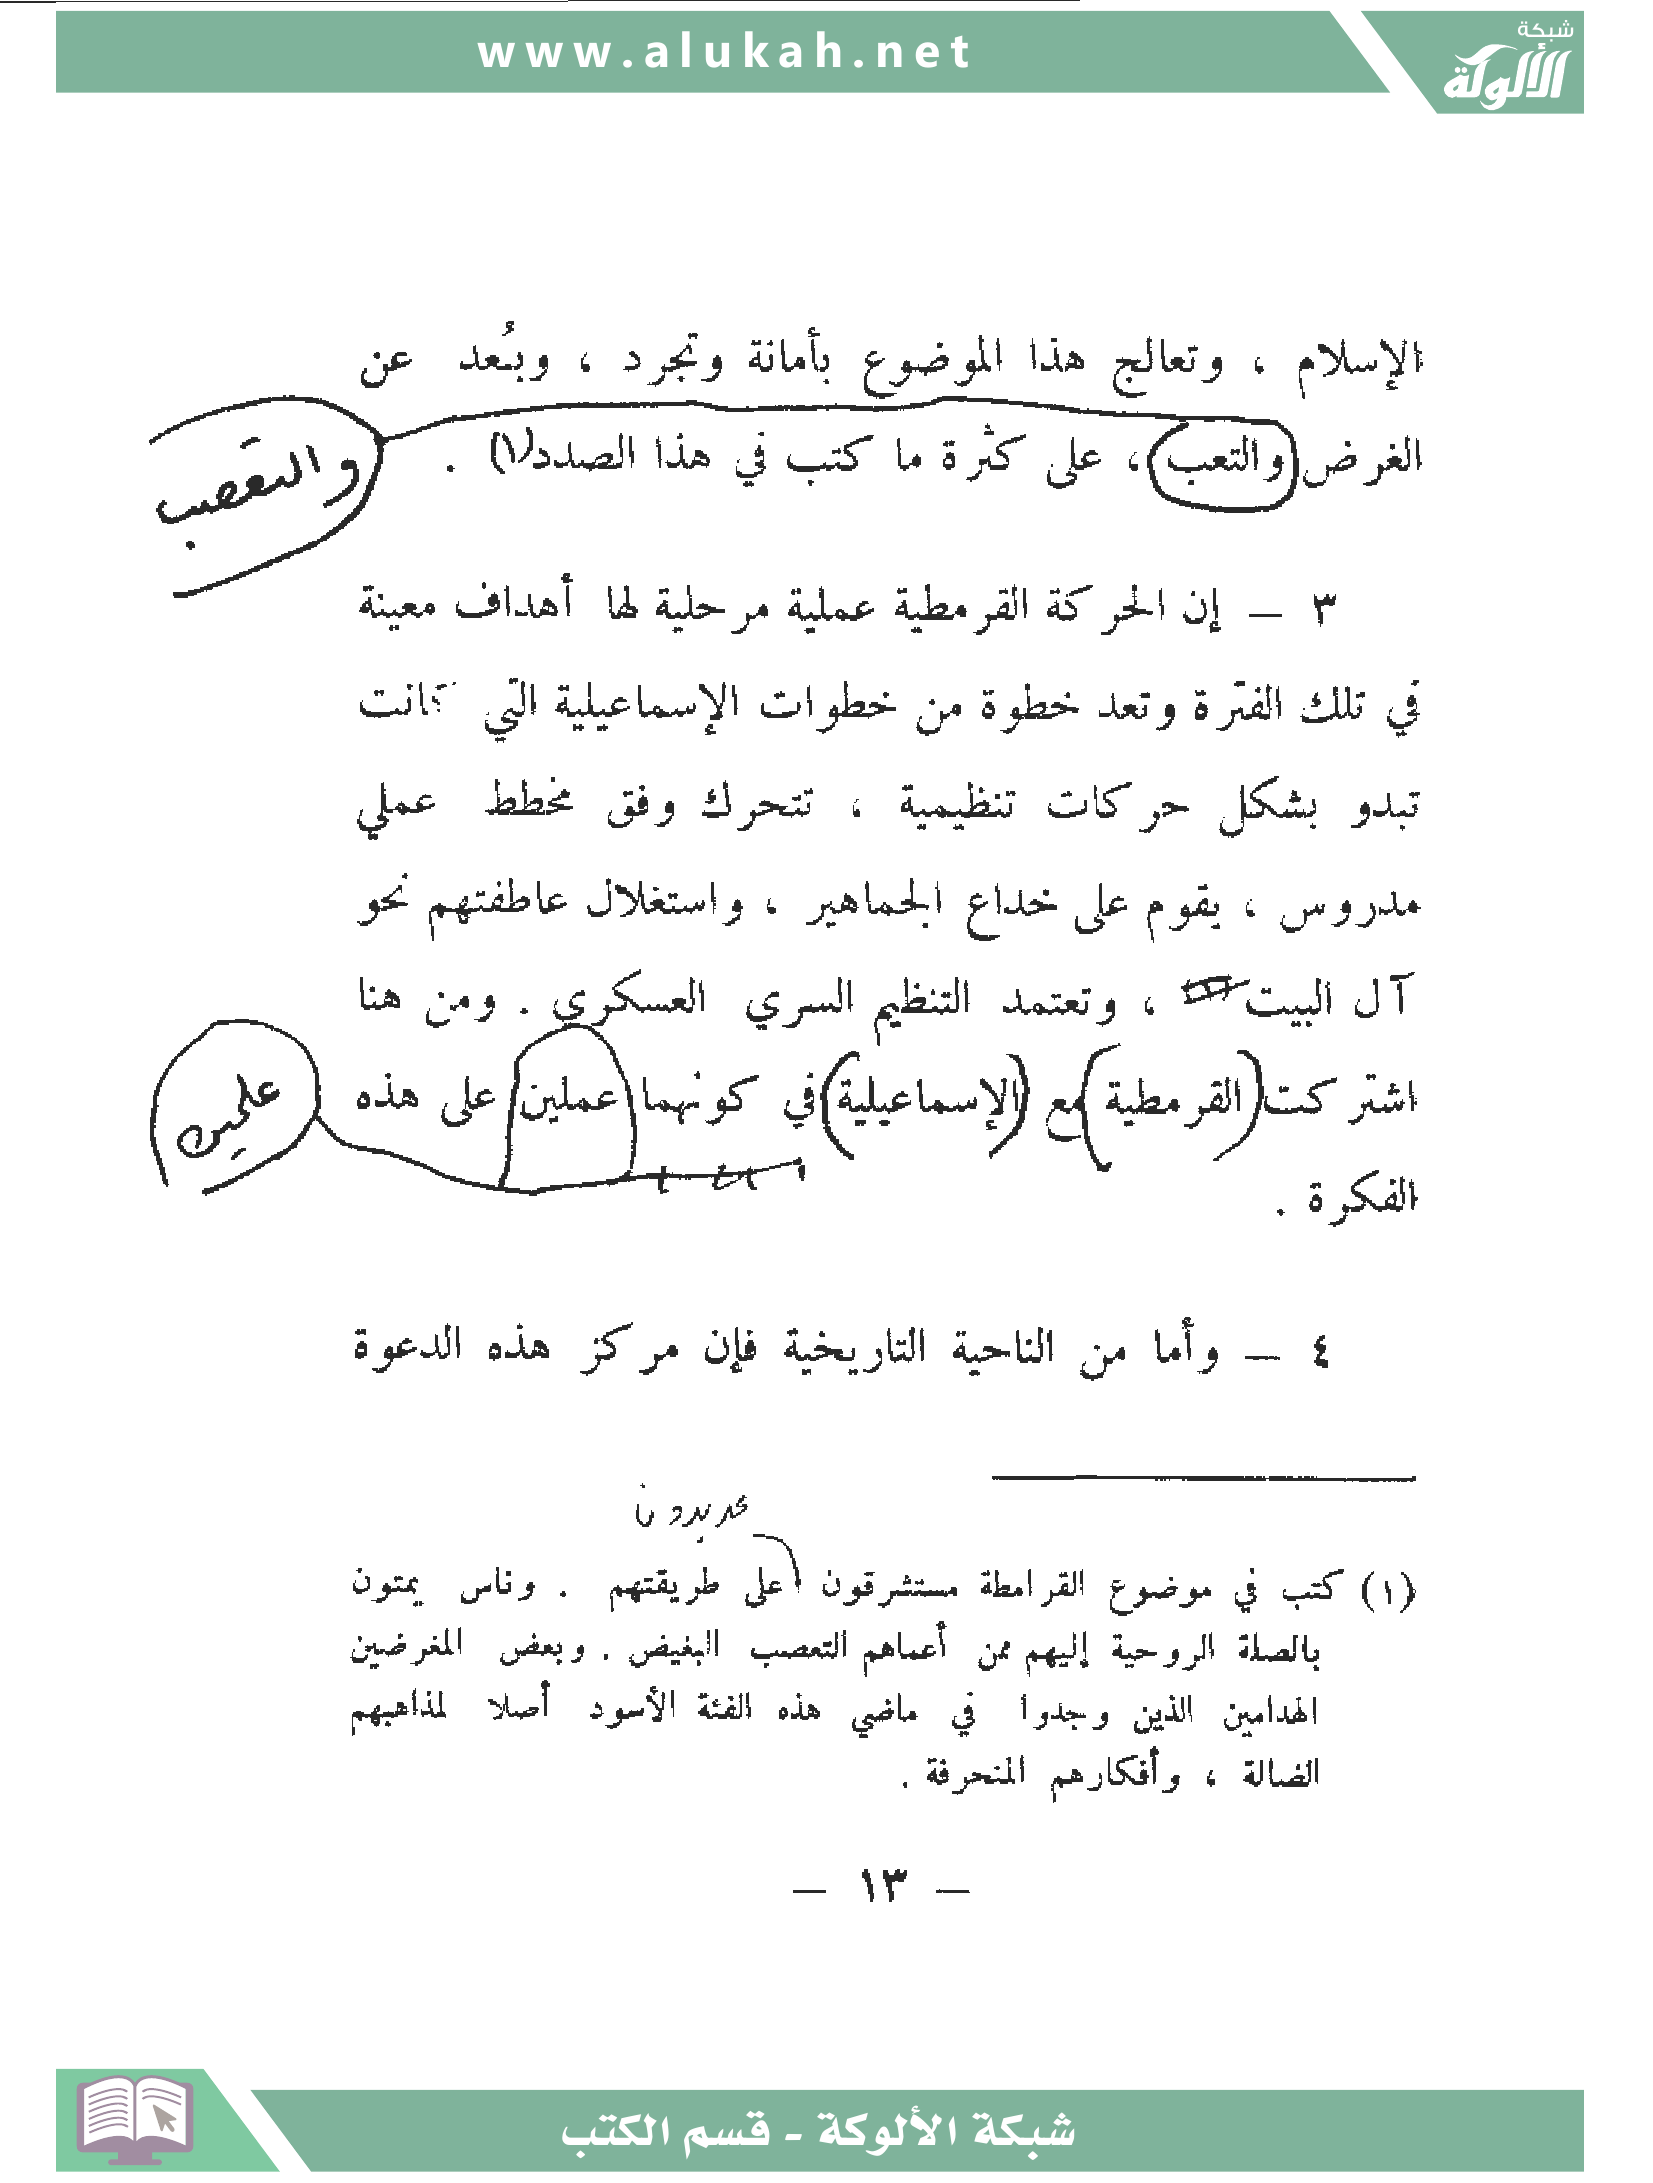 www.alukah.net
شبكة
الألوكة
الإسلام ، وتعالج هذا الموضوع بأمانة وتجرد ، وبُعد عن
الغرض والتعب ، على كثرة ما كتب في هذا الصدد(١) .
والتعصب
٣ — إن الحركة القرمطية عملية مرحلية لها أهداف معينة
في تلك الفترة وتعد خطوة من خطوات الإسماعيلية التي كانت
تبدو بشكل حركات تنظيمية ، تتحرك وفق مخطط عملي
مدروس ، يقوم على خداع الجماهير ، واستغلال عاطفتهم نحو
آل البيت ، وتعتمد التنظيم السري العسكري . ومن هنا
اشتركت (القرمطية) مع (الإسماعيلية) في كونهما عملين على هذه
الفكرة .
٤ — وأما من الناحية التاريخية فإن مركز هذه الدعوة
(١) كتب في موضوع القرامطة مستشرقون على طريقتهم . وناس يمتون
بالصلة الروحية إليهم ممن أعماهم التعصب البغيض . وبعض المغرضين
الهدامين الذين وجدوا في ماضي هذه الفئة الأسود أصلا لمذاهبهم
الضالة ، وأفكارهم المنحرفة .
— ١٣ —
شبكة الألوكة - قسم الكتب